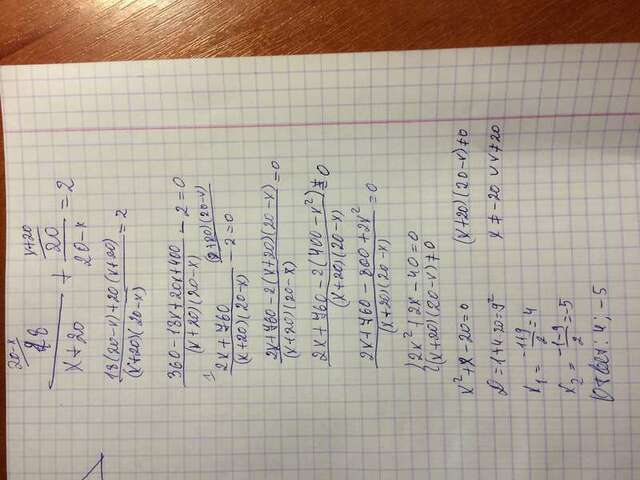 18/(x+20) + 20/(20-x) = 2
(18(20-x)+20(x+20))/((x+20)(20-x)) = 2
(360-18x+20x+400)/((x+20)(20-x)) - 2 = 0
(2x+760)/((x+20)(20-x)) - 2 = 0
(2x+760-2(x+20)(20-x))/((x+20)(20-x)) = 0
(2x+760-2(400-x²))/((x+20)(20-x)) = 0
(2x+760-800+2x²)/((x+20)(20-x)) = 0
{2x²+2x-40=0
{(x+20)(20-x)≠0
x²+x-20=0 (x+20)(20-x)≠0
D=1+4·20=9² x≠-20 ∪ x≠20
x₁ = (-1+9)/2 = 4
x₂ = (-1-9)/2 = -5
Ответ: 4; -5